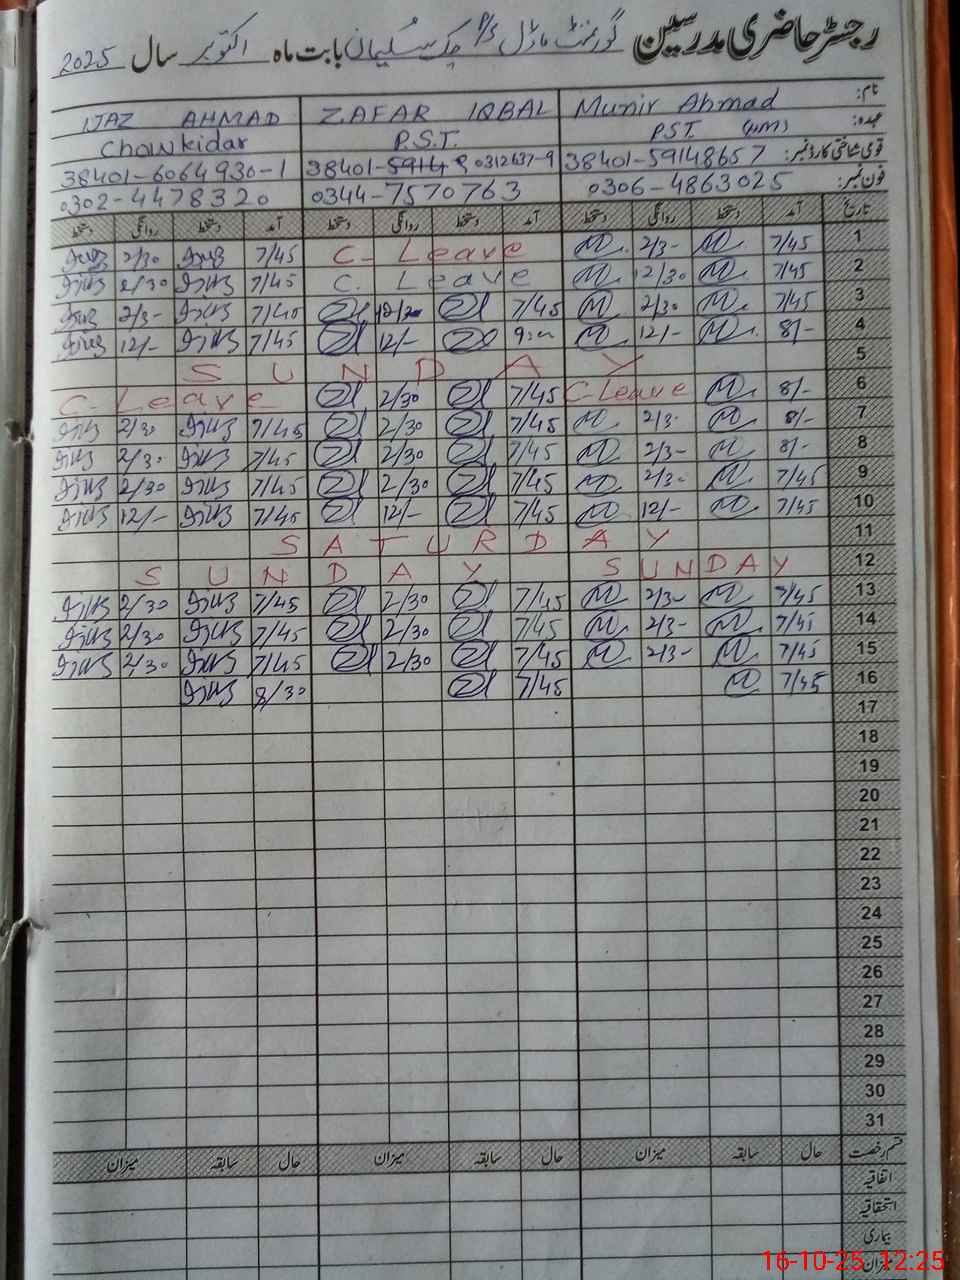 رجسٹر حاضری مدرسین گورنمنٹ ماڈل P/S چک سلیمان بابت ماہ اکتوبر سال 2025
نام: Munir Ahmad ZAFAR IQBAL IJAZ AHMAD
عہدہ: P.S.T. P.S.T. Chowkidar
قومی شناختی کارڈ نمبر: 38401-59148657 0312637-9 38401-6064930-1
فون نمبر: 0306-4863025 0344-7570763 0302-4478320
تاریخ آمد دستخط روانگی دستخط آمد دستخط روانگی دستخط آمد دستخط روانگی دستخط
1 7/45 M 2/3- M C- Leave 7/45 2/30
2 7/45 M 12/30 M C. Leave 7/45 2/30
3 7/45 M 2/30 M 7/45 7/45 2/3-
4 8/- M 12/- M 12/- 7/45 12/-
5 SUNDAY
6 8/- M C-Leave 7/45 2/30 C-Leave
7 8/- M 2/3- M 7/45 2/30 7/45 2/30
8 8/- M 2/3- M 7/45 2/30 7/45 2/30
9 7/45 M 2/3- M 7/45 2/30 7/45 2/30
10 7/45 M 12/- M 7/45 12/- 7/45 12/-
11 SATURDAY
12 SUNDAY SUNDAY
13 7/45 M 2/3- M 7/45 2/30 7/45 2/30
14 7/45 M 2/3- M 7/45 2/30 7/45 2/30
15 7/45 M 2/3- M 7/45 2/30 7/45 2/30
16 7/45 M 7/45 8/30
17
18
19
20
21
22
23
24
25
26
27
28
29
30
31
قسم رخصت حال سابقہ میزان حال سابقہ میزان حال سابقہ میزان
اتفاقیہ
استحقاقیہ
بیماری
میزان
16-10-25 12:25